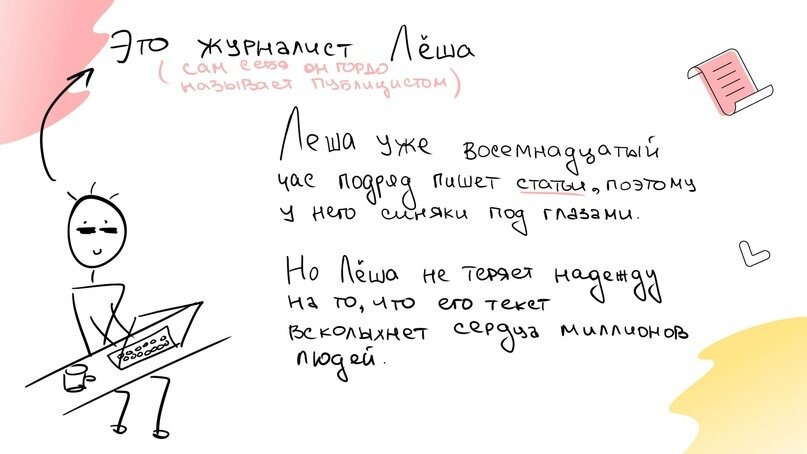 Это журналист Лёша
(сам себя он гордо
называет публицистом)
Леша уже восемнадцатый
час подряд пишет статьи, поэтому
у него синяки под глазами.
Но Лёша не теряет надежду
на то, что его текст
всколыхнет сердца миллионов
людей.